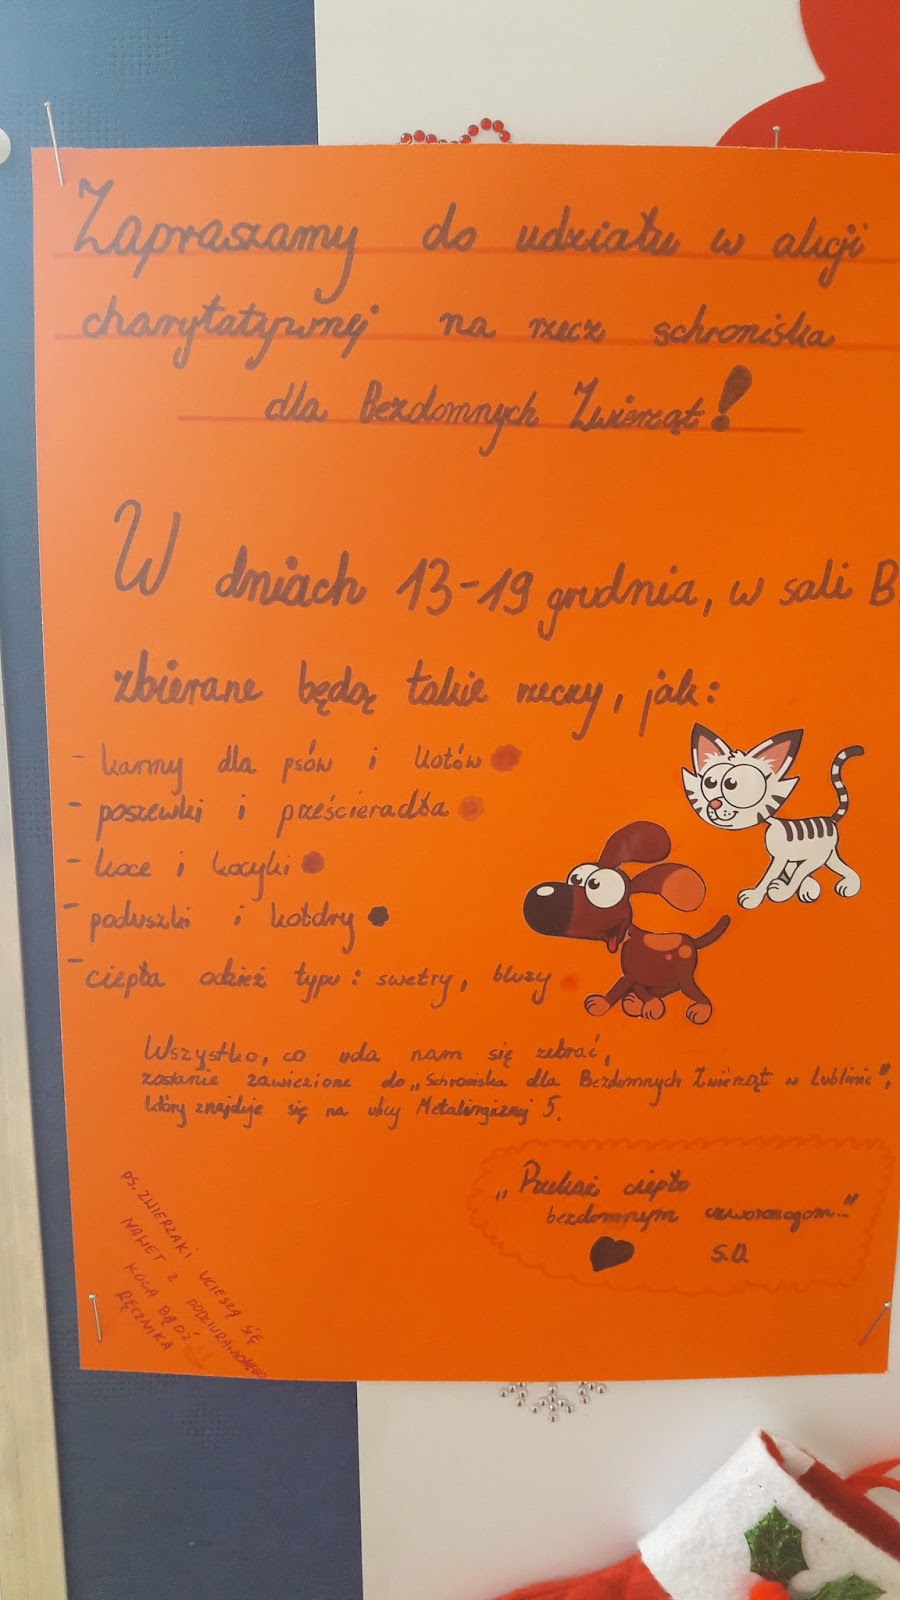 Zapraszamy do udziału w akcji
charytatywnej na rzecz schroniska
dla Bezdomnych Zwierząt!
W dniach 13-19 grudnia, w sali B
zbierane będą takie rzeczy, jak:
- karmy dla psów i kotów
- poszewki i prześcieradła
- koce i kocyki
- poduszki i kołdry
- ciepła odzież typu: swetry, bluzy
Wszystko, co uda nam się zebrać,
zostanie zawiezione do „Schroniska dla Bezdomnych Zwierząt w Lublinie",
który znajduje się na ulicy Metalurgicznej 5.
„Przekaż ciepło
bezdomnym czworonogom..."
S.O.
PS. ZWIERZAKI UCIESZĄ SIĘ
NAWET Z PODZIURAWIONEGO
KOCA BĄDŹ
RĘCZNIKA